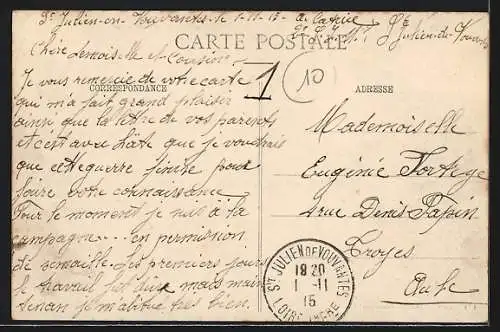 St Julien-de-Vouvantes le 1-11-15
St Julien-de-Vouvantes
CARTE POSTALE
Chère demoiselle et Cousine
CORRESPONDANCE
Je vous remercie de votre carte
qui m'a fait grand plaisir
ainsi que la lettre de vos parents
et c'est avec hâte que je voudrais
que cette guerre finisse pour
faire votre connaissance
Pour le moment je suis à la
campagne... en permission
de semaille. Les premiers jours
le travail fut dur mais main
tenan je m'abitue très bien.
1
10
ADRESSE
Mademoiselle
Eugénie
4 rue Denis Papin
Troyes
Aube
ST JULIEN DE VOUVANTES
18 20
1 -11
15
LOIRE INFRE